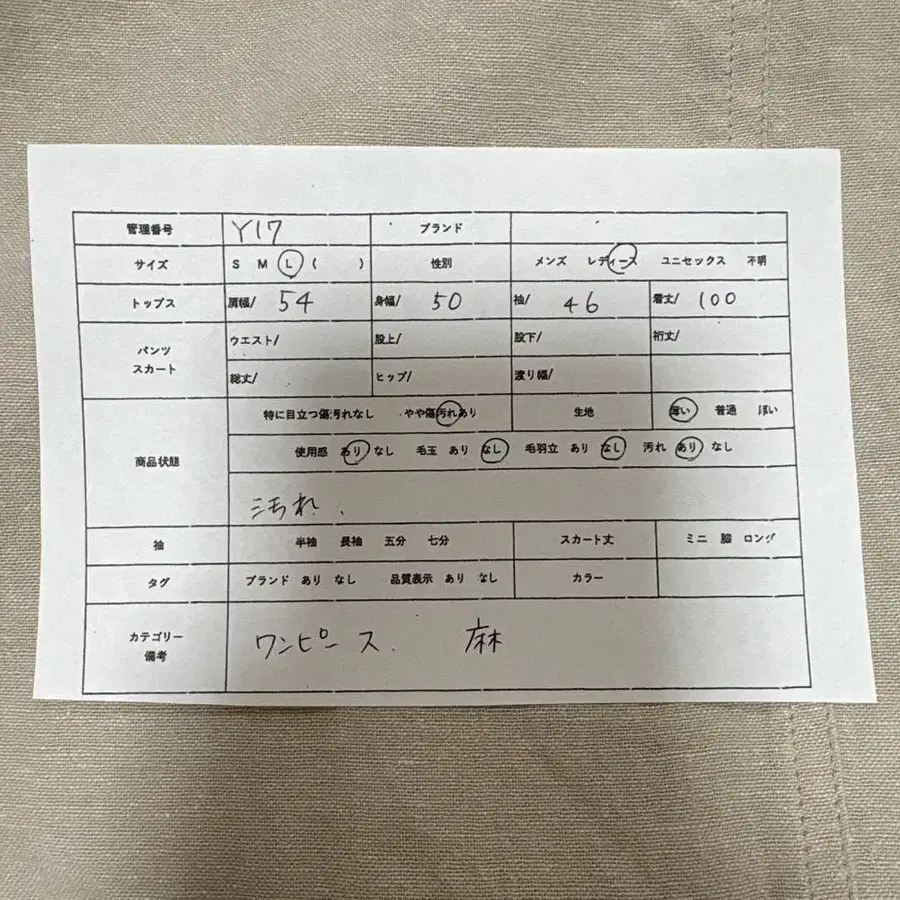 管理番号 Y17 ブランド
サイズ S M L ( ) 性別 メンズ レディース ユニセックス 不明
トップス 肩幅/ 54 身幅/ 50 袖/ 46 着丈/ 100
パンツ スカート
ウエスト/ 股上/ 股下/ 裄丈/
総丈/ ヒップ/ 渡り幅/
商品状態 特に目立つ傷汚れなし やや傷汚れあり 生地 薄い 普通 厚い
使用感 あり なし 毛玉 あり なし 毛羽立 あり なし 汚れ あり なし
汚れ、
袖 半袖 長袖 五分 七分 スカート丈 ミニ 膝 ロング
タグ ブランド あり なし 品質表示 あり なし カラー
カテゴリー 備考 ワンピース. 麻